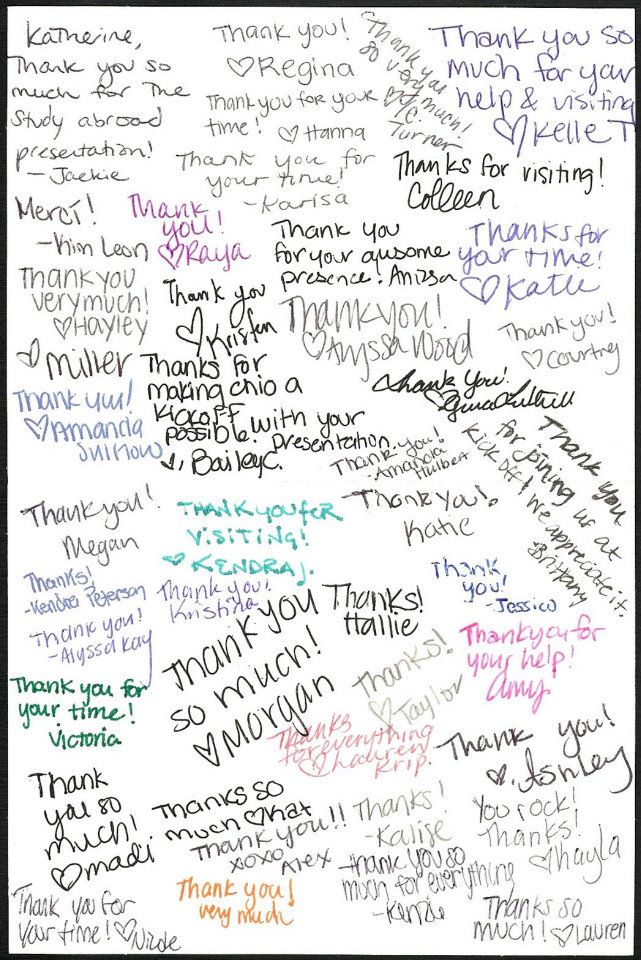 Katherine,
Thank you so
much for the
study abroad
presentation!
- Jackie
Thank you!
♡Regina
Thank you
so very much!
♡ C.
Turner
Thank you so
much for your
help & visiting
♡Kelle T
Thank you for your
time! ♡Hanna
Thank you for
your time!
-Karisa
Thanks for visiting!
Colleen
Merci!
-Kim Leon
Thank
you!
♡Raya
Thank you
for your awesome
presence! Anissa
Thanks for
your time!
♡Katie
Thank you
very much!
♡Hayley
♡Miller
Thank you
♡Kristen
Thank you!
♡Alyssa Wood
Thank you!
♡Courtney
Thanks for
making chio a
kickoff
possible with your
presentation.
Bailey C.
Thank you!
♡Amanda
Thank you!
♡Gina
Thank you!
-Amanda
Hulbert
Thank you
for joining us at
kick off! We appreciate it.
Brittany
Thank you!
Megan
THANK YOU FOR
VISITING!
♡KENDRA J.
Thank you!
Katie
Thanks!
-Kendra Peterson
Thank you!
Kristina
Thanks!
Hallie
Thank
you!
-Jessica
Thank you!
-Alyssa Kay
Thank you
so much!
♡Morgan
Thanks!
♡Taylor
Thank you for
your help!
Amy
Thank you for
your time!
Victoria
Thanks
for everything
♡Lauren
Krip.
Thank you!
♡Ashley
Thank
you so
much!
♡madi
Thanks so
much ♡Kat
Thank you!!
xoxo Alex
Thanks!
-Kalise
You rock!
Thanks!
♡Shayla
Thank you for
your time! ♡Nicole
Thank you!
very much
thank you so
much for everything
-Kenzie
Thanks so
much! ♡Lauren